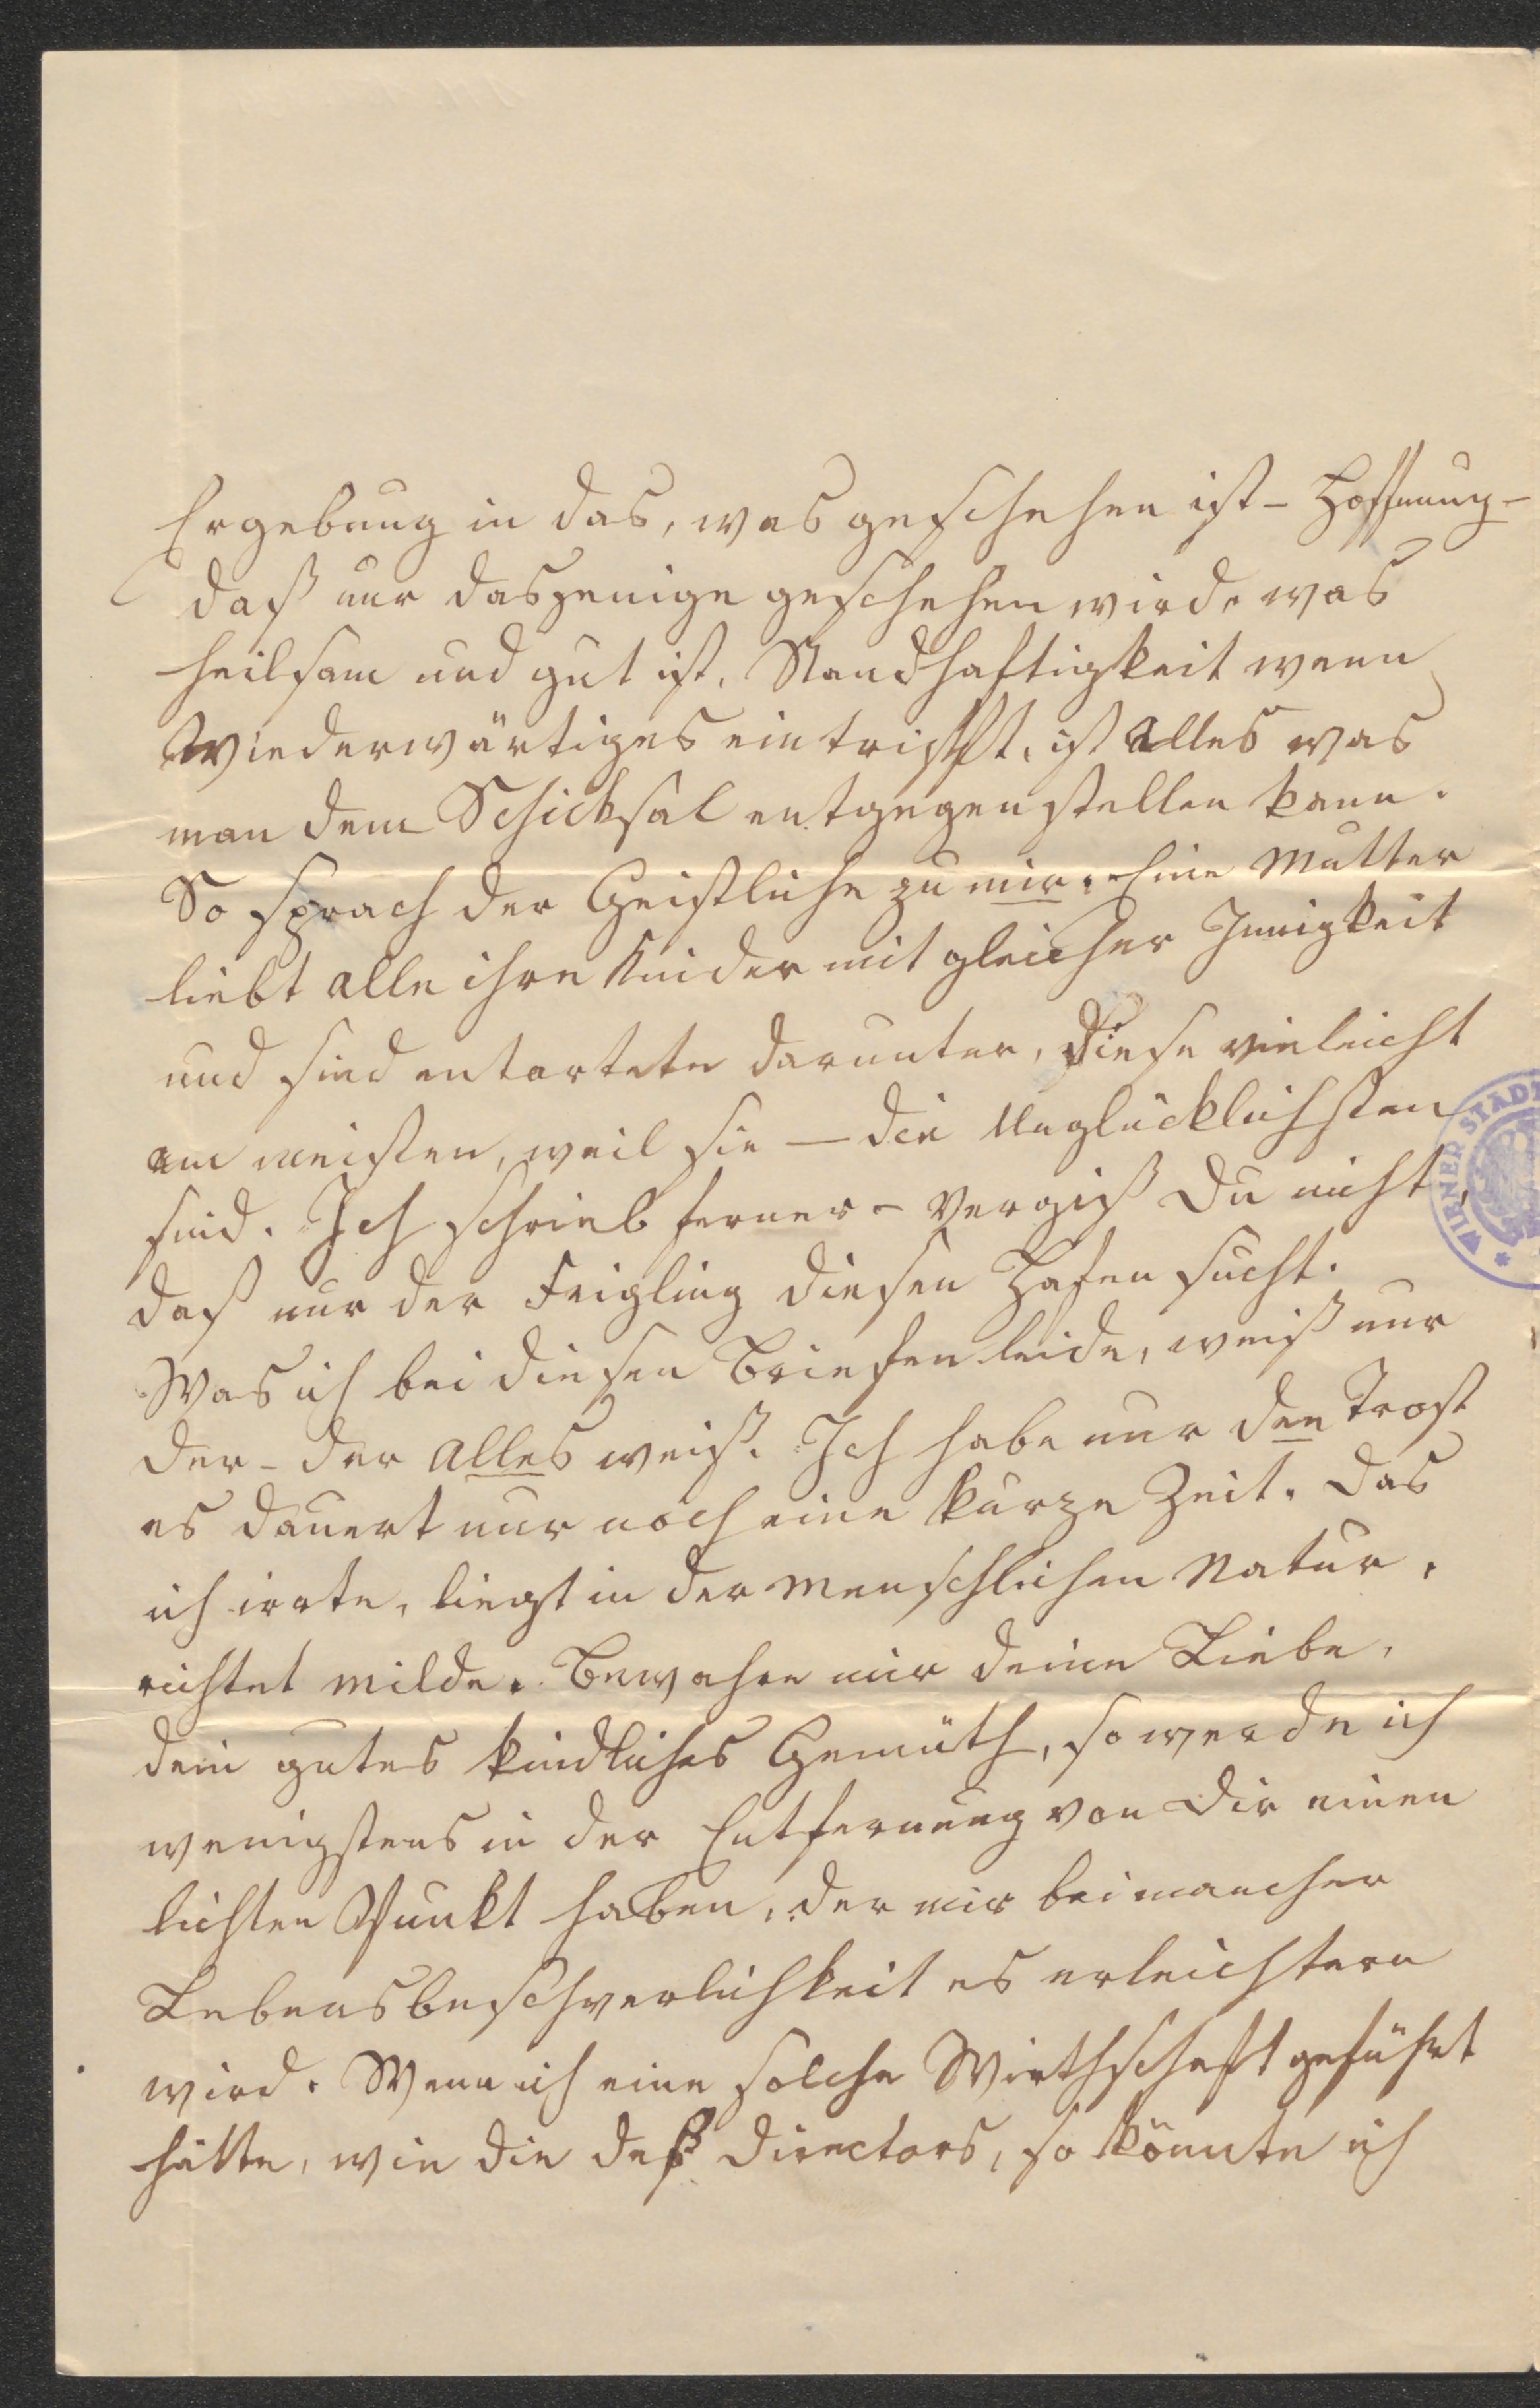 Ergebung in das, was geschehen ist – Hoffnung –
daß nur dasjenige geschehen wird, was
heilsam und gut ist, Standhaftigkeit wenn
Wiederwärtiges eintrifft, ist Alles was
man dem Schicksal entgegenstellen kann.
So sprach der Geistliche zu mir. Eine Mutter
liebt alle ihre Kinder mit gleicher Innigkeit
und sind entartete darunter, diese vieleicht
am meisten, weil sie – die Unglücklichsten
sind. Ich schrieb ferner – Vergiß Du nicht,
daß nur der Feigling diesen Hafen sucht.
Was ich bei diesen Briefen leide, weiß nur
der – der Alles weiß. Ich habe nur den Trost
es dauert nur noch eine kurze Zeit. Das
ich irrte, liegt in der menschlichen Natur,
richtet milde. Bewahre mir deine Liebe,
dein gutes kindliches Gemüth, so werde ich
wenigstens in der Entfernung von Dir einen
lichten Punkt haben, der mir bei mancher
Lebensbeschwerlichkeit es erleichtern
wird. Wenn ich eine solche Wirthschaft geführt
hätte, wie die deß Directors, so könnte ich
WIENER STADT